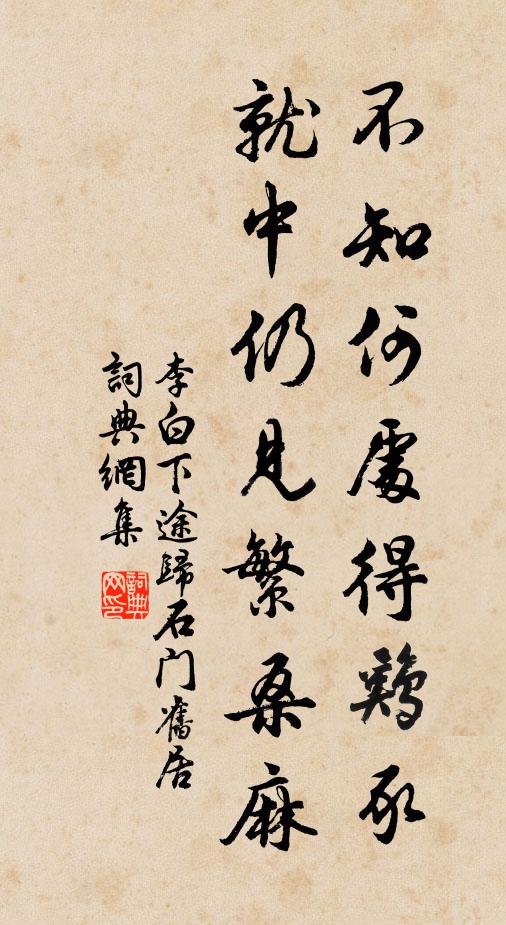 不知何處得鷄豕
就中仍見繁桑麻
李白下途歸石门舊居
詞典網集
詞典网印